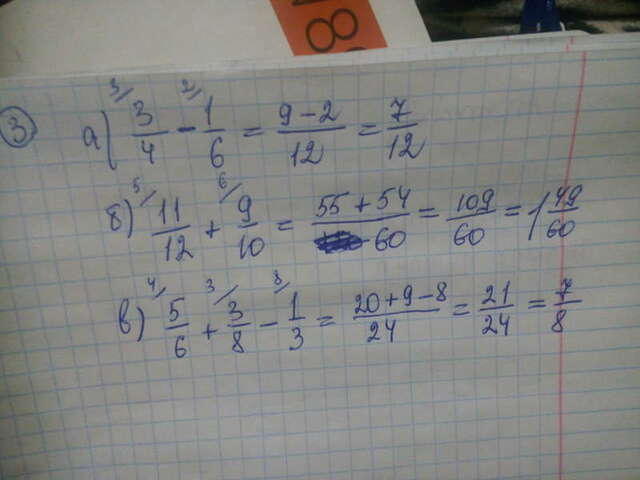 18
③
а) 3/ 3/4 - 2/ 1/6 = (9-2)/12 = 7/12
б) 5/ 11/12 + 6/ 9/10 = (55+54)/60 = 109/60 = 1 49/60
в) 4/ 5/6 + 3/ 3/8 - 8/ 1/3 = (20+9-8)/24 = 21/24 = 7/8